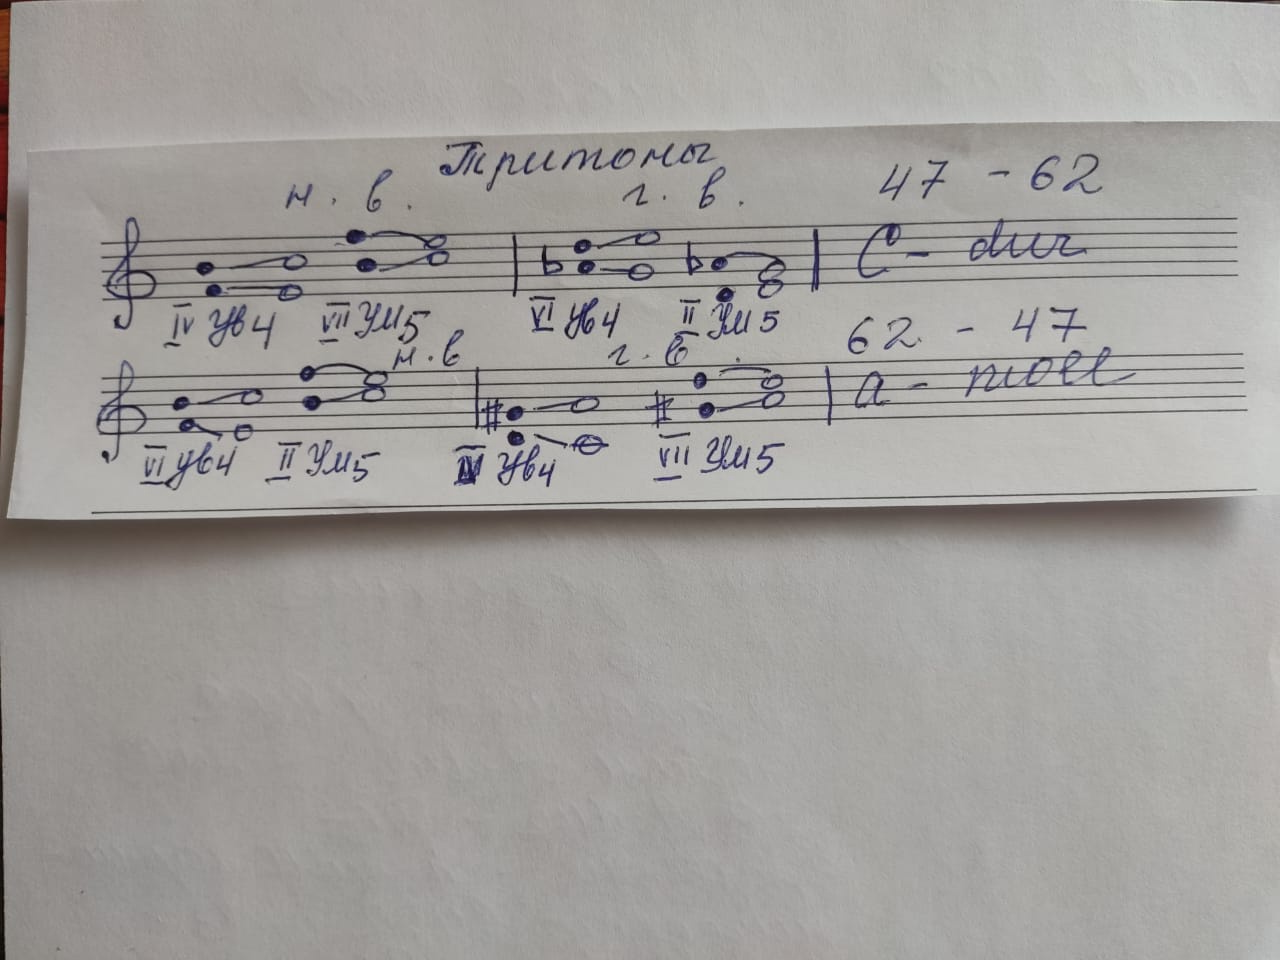 Тритоны
н. в. г. в. 47 - 62
C - dur
IV Ув4 VII Ум5 VI Ув4 II Ум5
н. в г. в. 62 - 47
a - moll
VI ув4 II Ум5 IV Ув4 VII Ум5